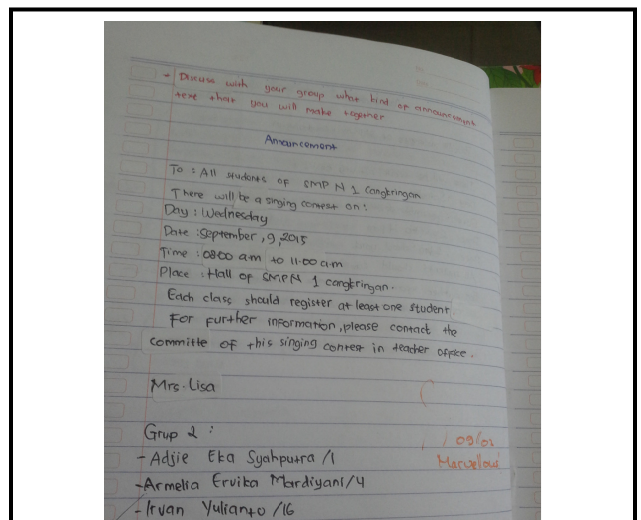 - Discuss with your group what kind of announcement
text that you will make together
Announcement
To : All students of SMP N 1 Cangkringan
There will be a singing contest on :
Day : Wednesday
Date : September, 9, 2015
Time : 08.00 a.m to 11.00 a.m
Place : Hall of SMPN 1 Cangkringan.
Each class should register at least one student
For further information, please contact the
committe of this singing contest in teacher office.
Mrs. Lisa
Grup 2 :
- Adjie Eka Syahputra /1
- Armelia Ervika Mardiyani/4
- Irvan Yulianto /16
Marvellous